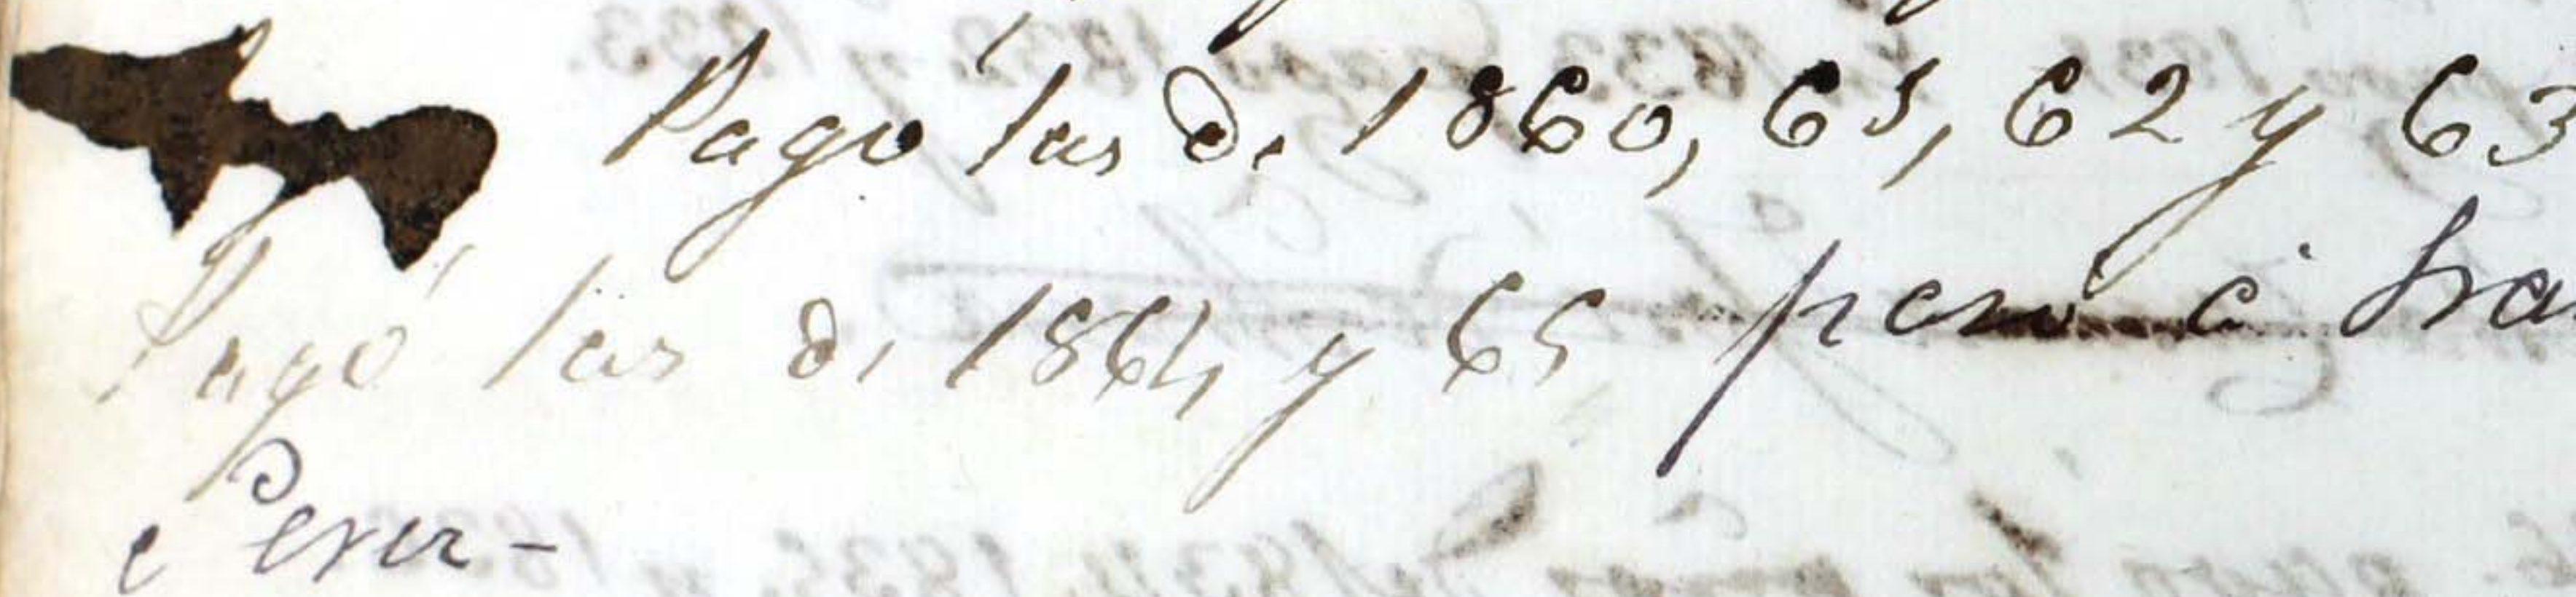 Pagó las de 1860, 61, 62 y 63
Pagó las de 1864 y 65 pero á